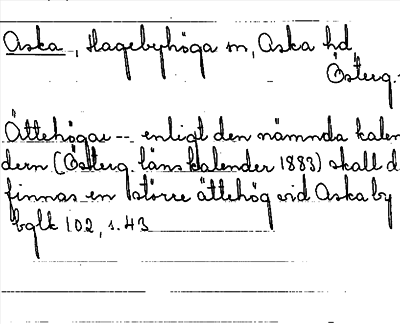 Aska, Hagebyhöga sn, Aska hd,
Österg.
Ättehögar -- enligt den nämnda kalen
dern (Österg. läns kalender 1883) skall d
finnas en större ättehög vid Aska by
bglk 102, s. 43